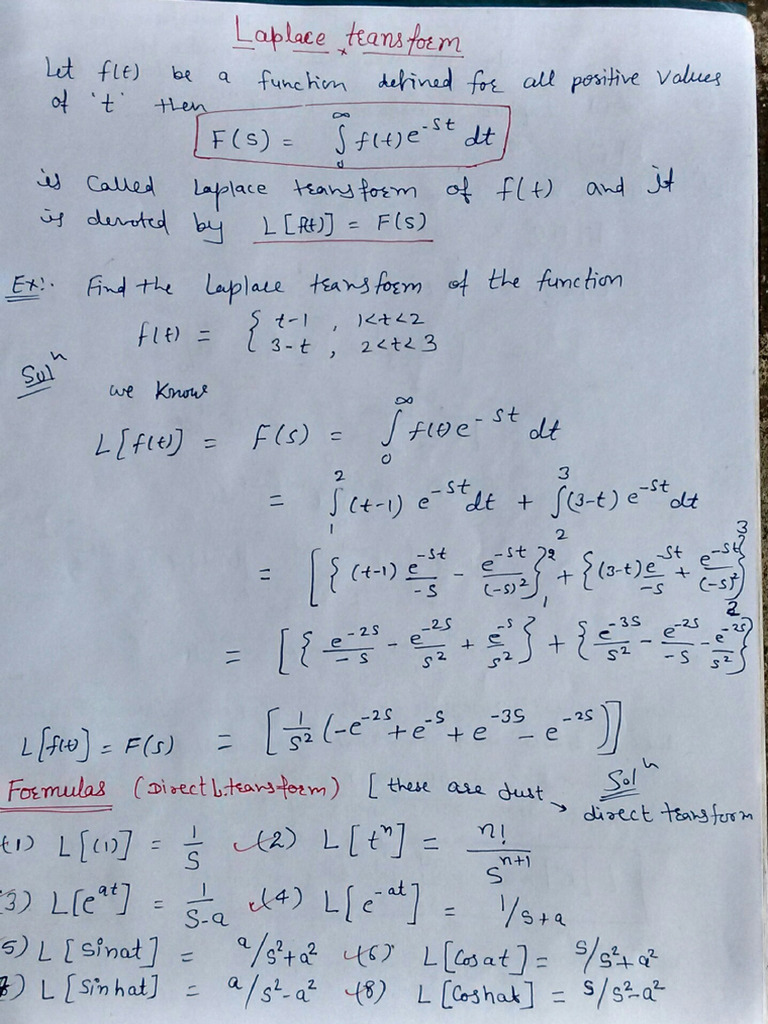 Laplace transform
Let f(t) be a function defined for all positive values
of 't' then
F(S) = ∫₀^∞ f(t)e^-st dt
is called Laplace transform of f(t) and it
is denoted by L[f(t)] = F(S)
Ex:. Find the Laplace transform of the function
f(t) = { t-1 , 1<t<2
3-t , 2<t<3
Solⁿ
we know
L[f(t)] = F(s) = ∫₀^∞ f(t)e^-st dt
= ∫₁^2 (t-1) e^-st dt + ∫₂^3 (3-t) e^-st dt
= [{(t-1) e^-st/-s - e^-st/(-s)^2}₁^2 + {(3-t) e^-st/-s + e^-st/(-s)^2}₂^3
= [{e^-2s/-s - e^-2s/s^2 + e^-s/s^2} + {e^-3s/s^2 - e^-2s/-s - e^-2s/s^2}
L[f(t)] = F(s) = [1/s^2 (-e^-2s + e^-s + e^-3s - e^-2s)]
Solⁿ
Formulas (Direct L.transform) [these are Just → direct transform
(1) L[(1)] = 1/S (2) L[tⁿ] = n!/S^n+1
3) L[e^at] = 1/S-a (4) L[e^-at] = 1/s+a
5) L[Sinat] = a/s²+a² (6) L[Cosat] = s/s²+a²
7) L[Sinhat] = a/s²-a² (8) L[Coshat] = s/s²-a²